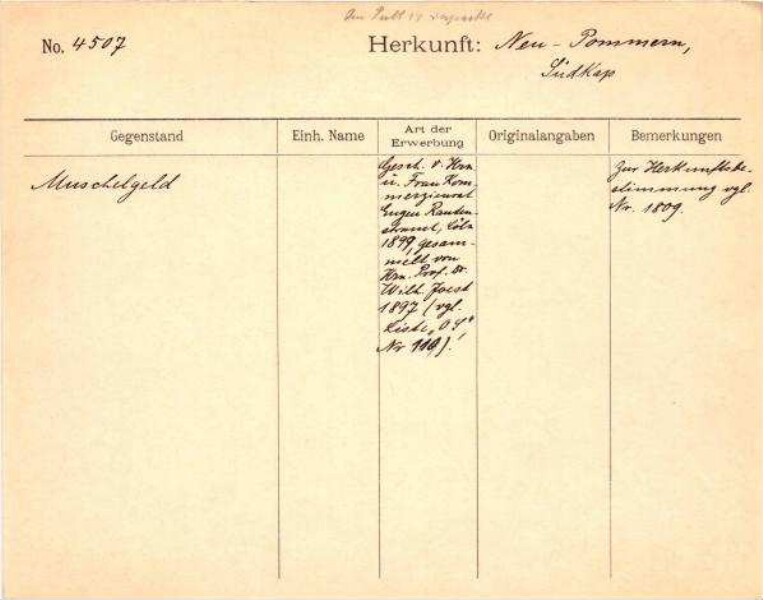 No. 4507
Herkunft: Neu-Pommern,
Südkap
Gegenstand
Einh. Name
Art der
Erwerbung
Originalangaben
Bemerkungen
Muschelgeld
Gesch. v. Hrn
u. Frau Kom-
merzienrat
Eugen Rauten-
strauch, Cöln
1899, gesam-
melt von
Hrn. Prof. Dr.
Wilh. Joest
1897 (vgl.
Liste „
Nr
Zur Herkunftsbe-
stimmung vgl.
Nr. 1809.